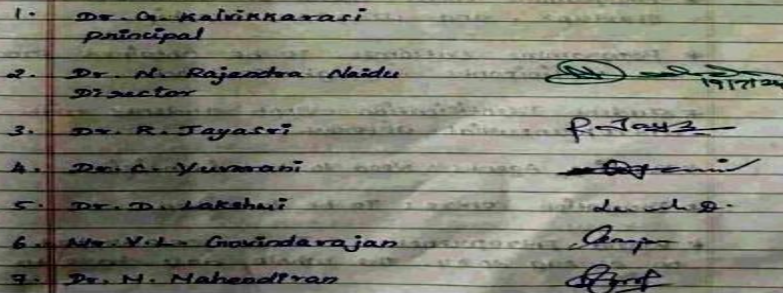 1. Dr. G. Kalvikkarasi
Principal
2. Dr. N. Rajendra Naidu
Director 19/7/24
3. Dr. R. Jayasri R. Jay
4. Dr. C. Yuvarani
5. Dr. D. Lakshmi
6. Mr. V.L. Govindarajan
7. Dr. M. Mahendiran